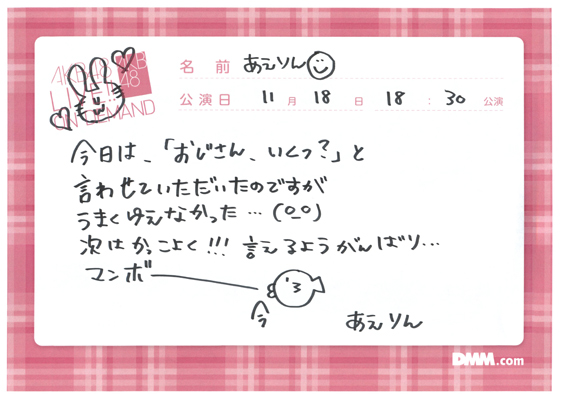 AKB48 AKB48
LIVE!!
ON DEMAND
名前 あえりん
公演日 11月18日 18:30公演
今日は、「おじさん、いくつ?」と
言わせていただいたのですが
うまくゆえなかった…(0_0)
次はかっこよく!!! 言えるようがんばり…
マンボー
今
あえりん
DMM.com